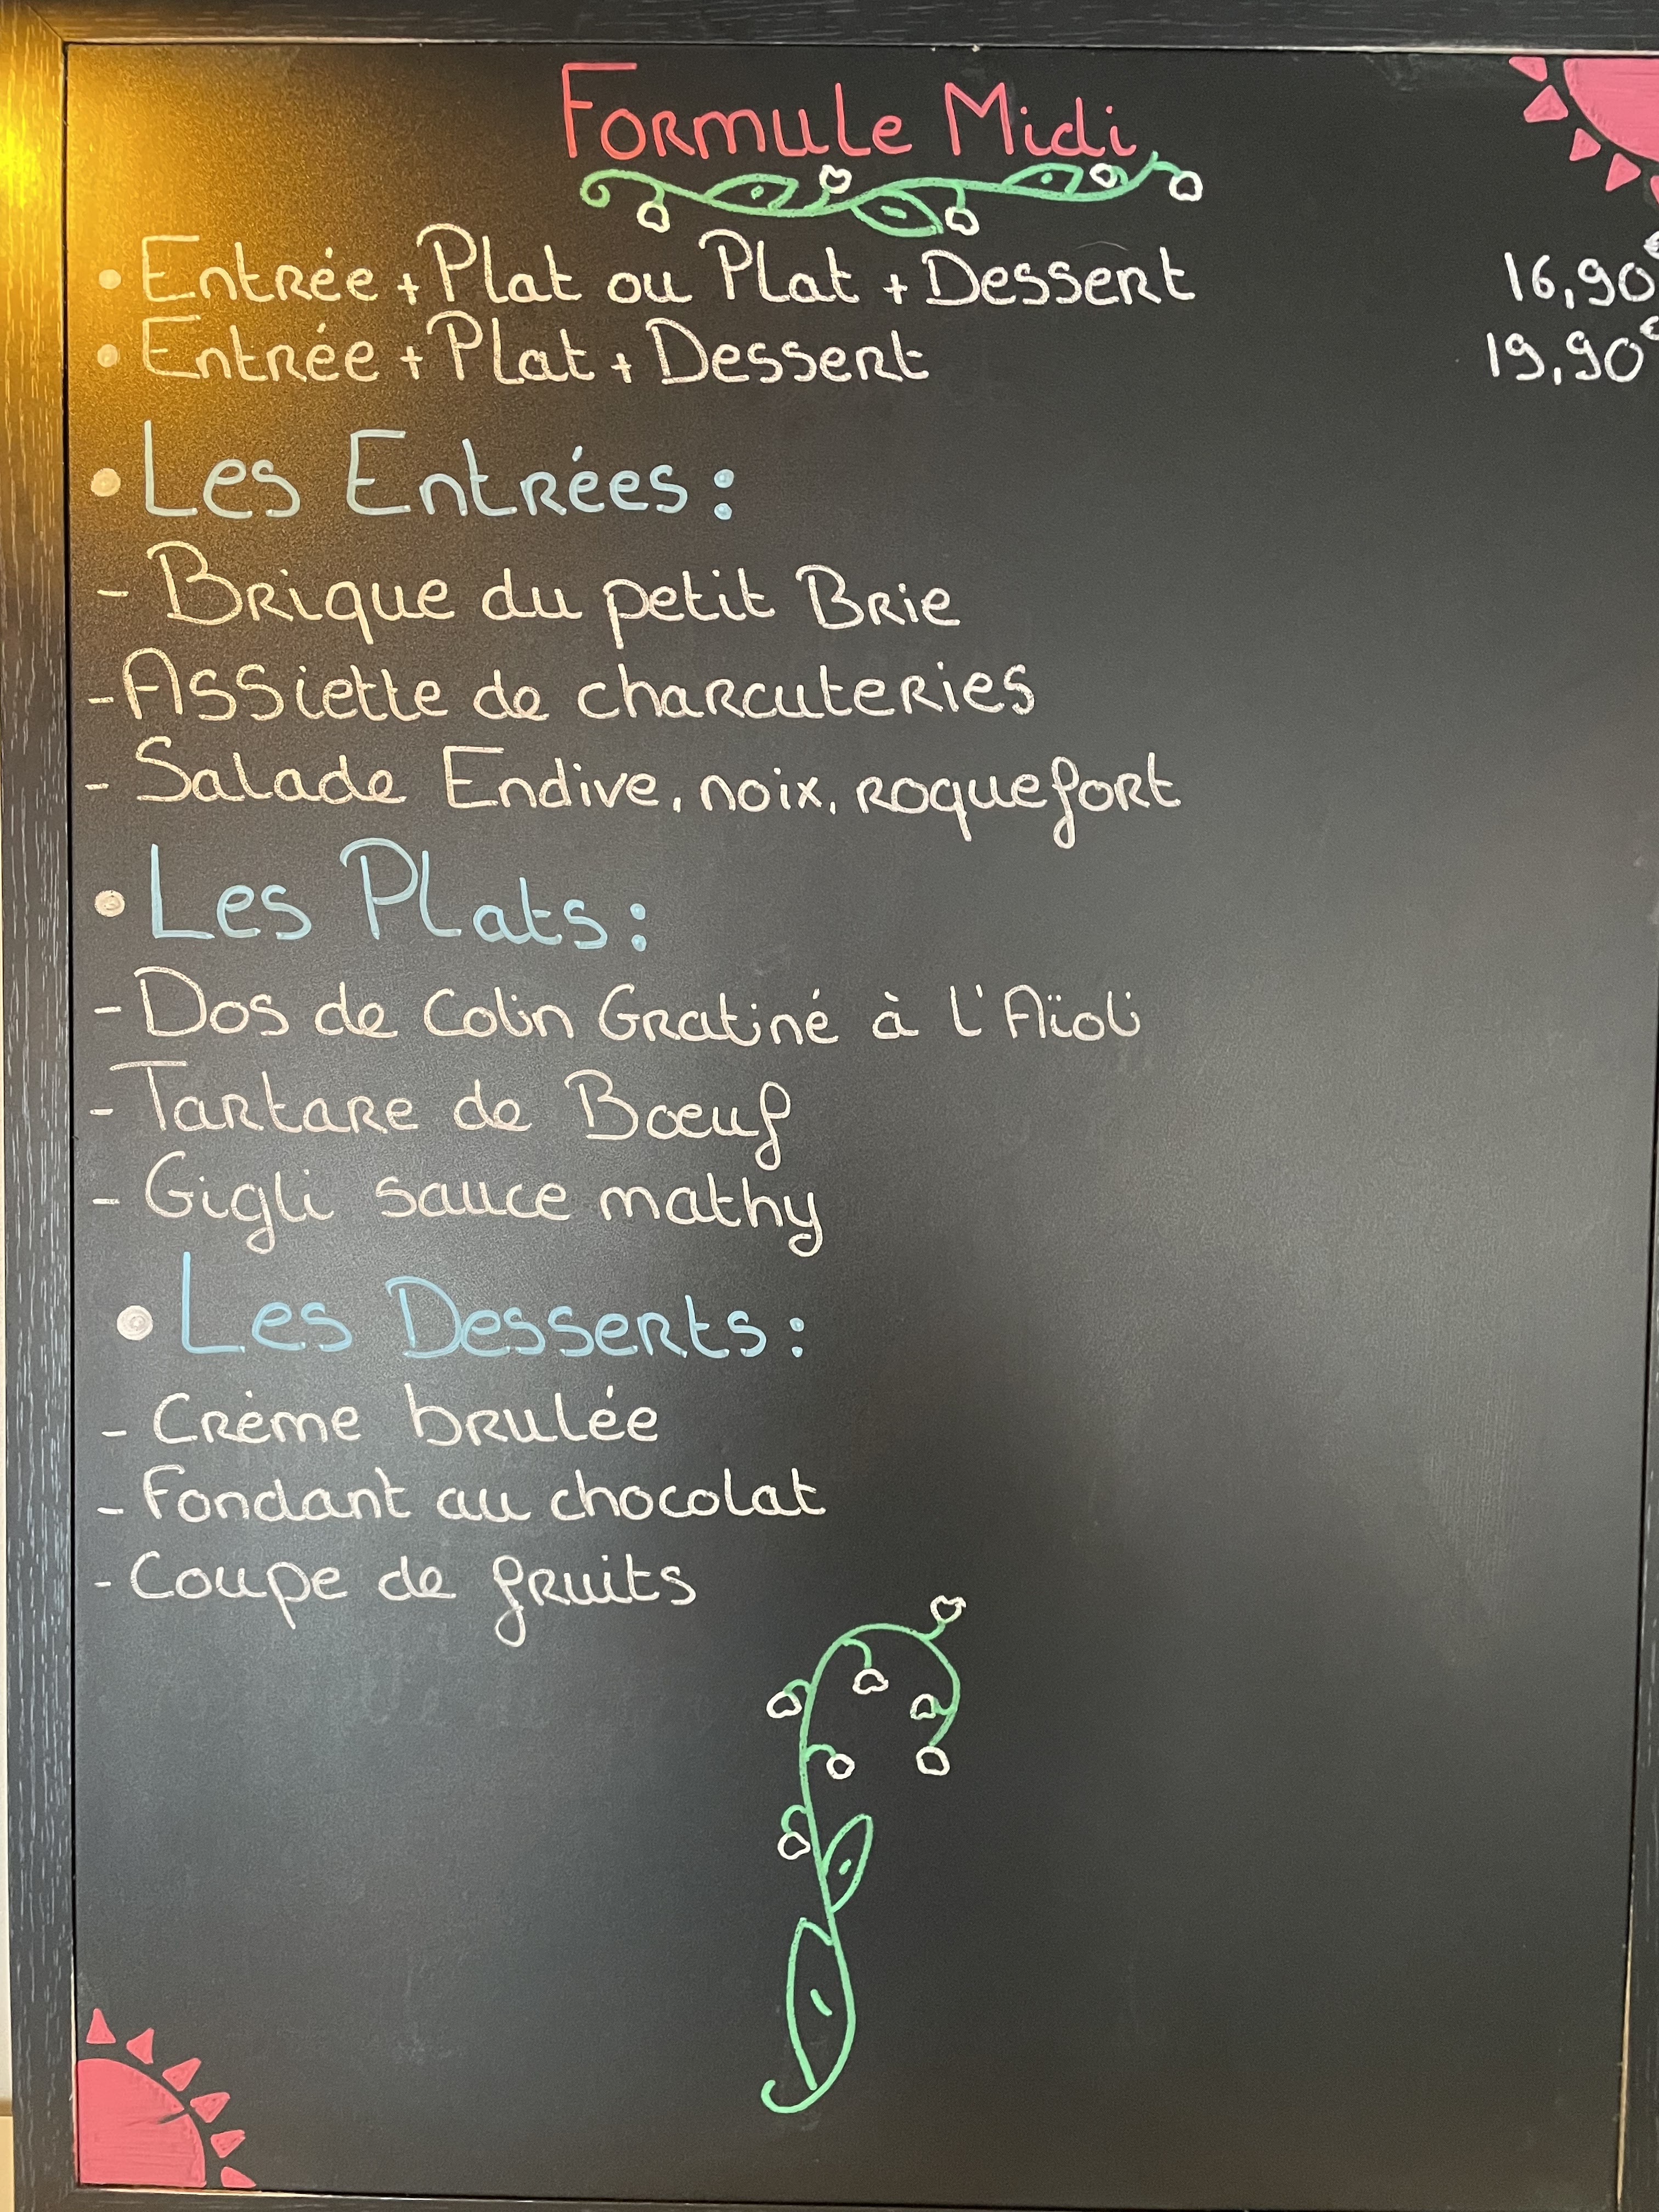 Formule Midi
• Entrée + Plat ou Plat + Dessert 16,90€
• Entrée + Plat + Dessert 19,90€
• Les Entrées :
- Brique du petit Brie
- Assiette de charcuteries
- Salade Endive, noix, roquefort
• Les Plats :
- Dos de Colin Gratiné à l'Aïoli
- Tartare de Bœuf
- Gigli sauce mathy
• Les Desserts :
- Crème brulée
- Fondant au chocolat
- Coupe de fruits